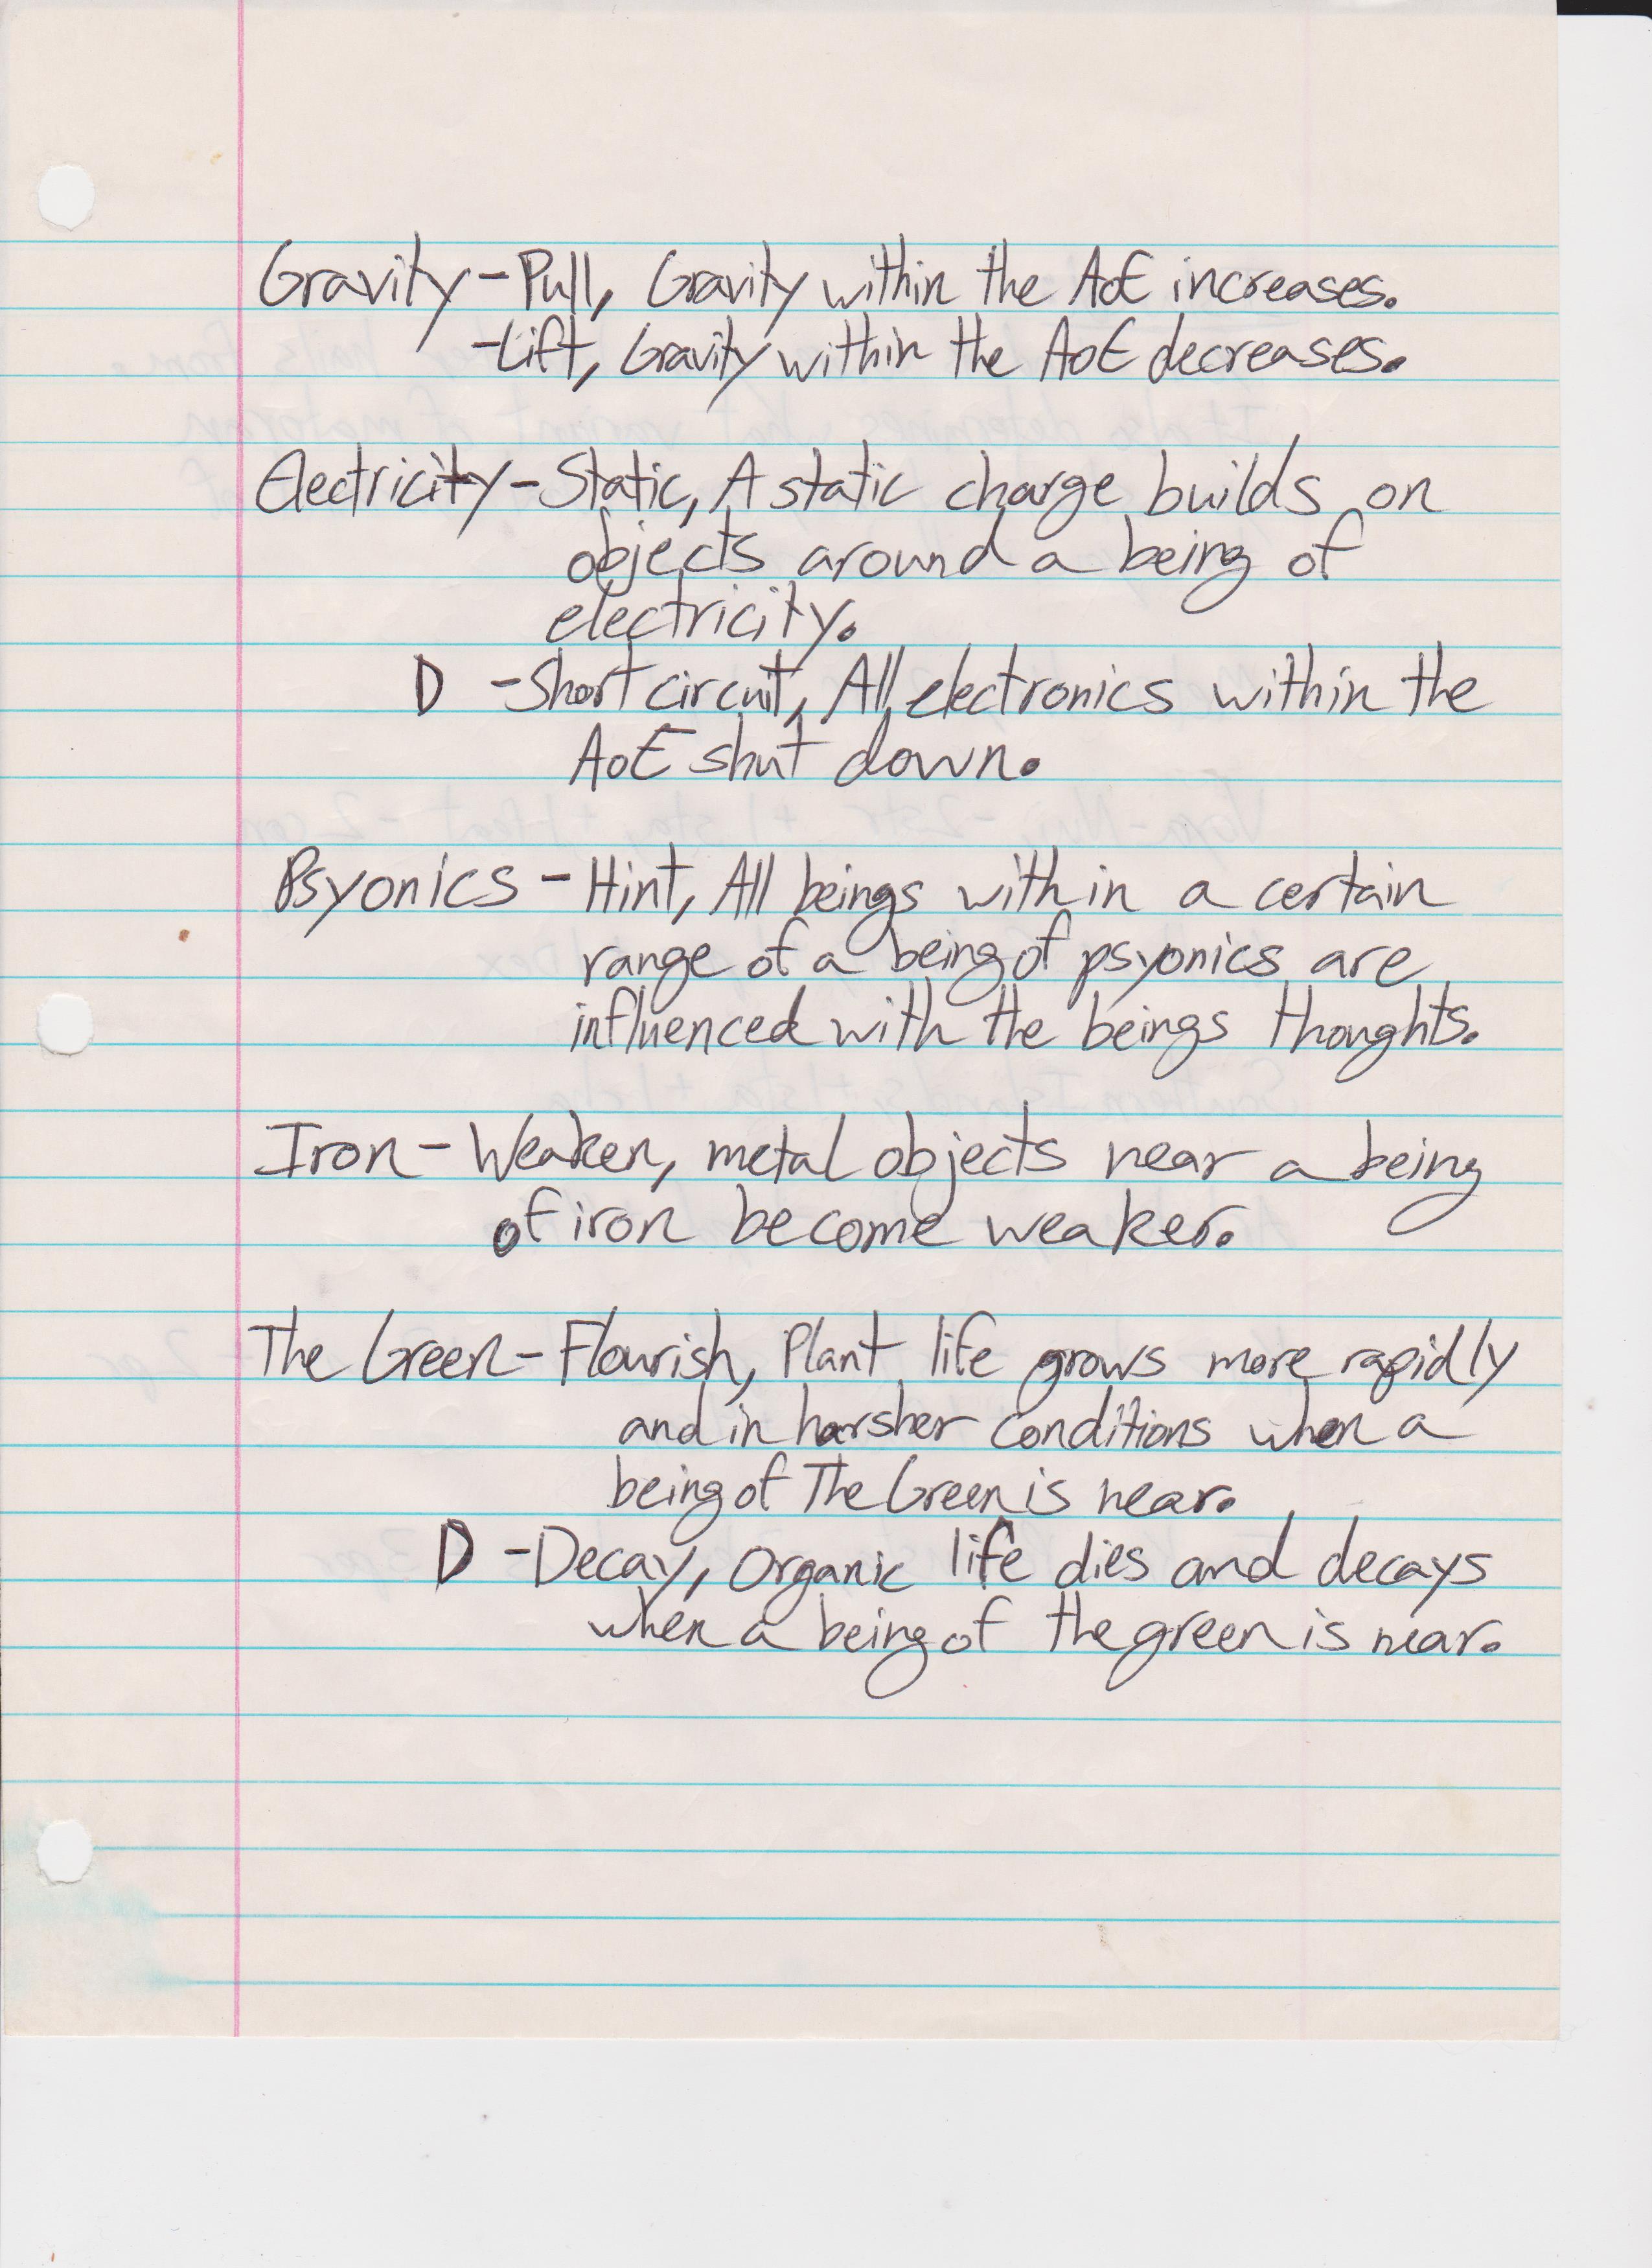 Gravity - Pull, Gravity within the AoE increases.
- Lift, Gravity within the AoE decreases.
Electricity - Static, A static charge builds on
objects around a being of
electricity.
D - Short circuit, All electronics within the
AoE shut down.
Psyonics - Hint, All beings within a certain
range of a being of psyonics are
influenced with the beings thoughts.
Iron - Weaken, metal objects near a being
of iron become weaker.
The Green - Flourish, Plant life grows more rapidly
and in harsher conditions when a
being of The Green is near.
D - Decay, Organic life dies and decays
when a being of the green is near.